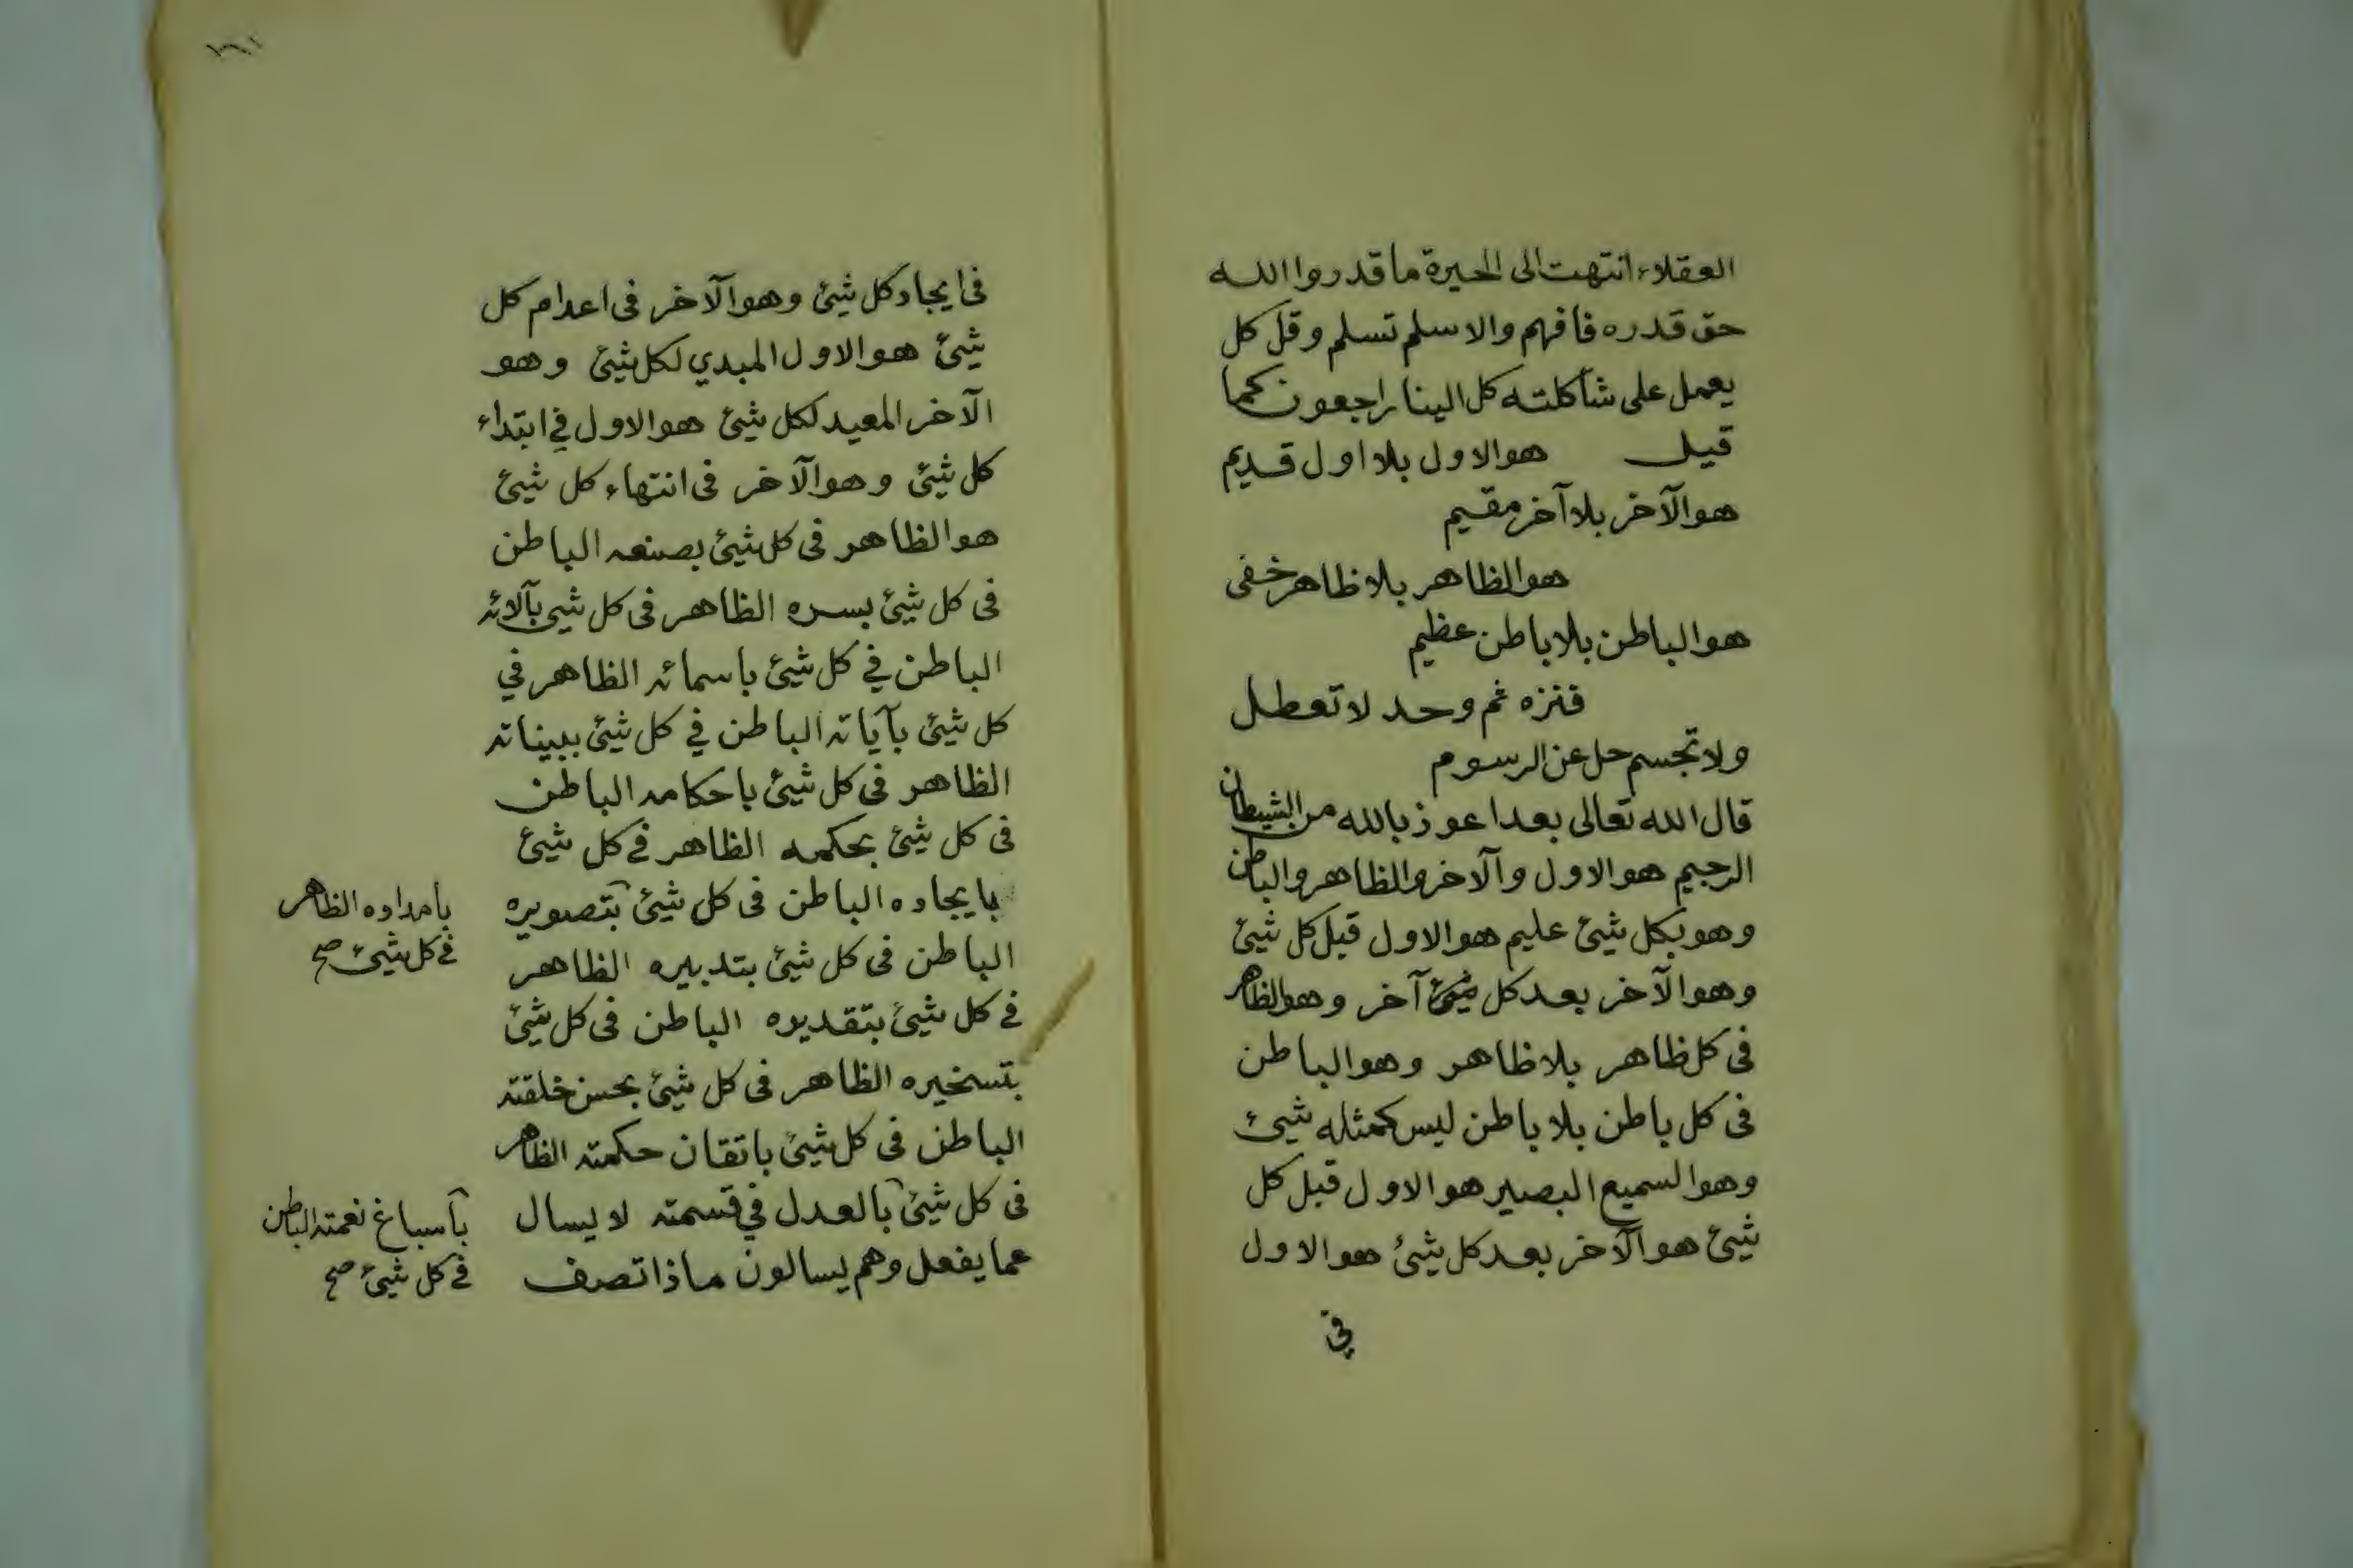 العقلاء انتهت الى الحيرة ما قدروا الله
حق قدره فافهم والا سلم تسلم وقل كل
يعمل على شاكلته كل الينا راجعون كما
قيل هو الاول بلا اول قديم
هو الآخر بلا آخر مقيم
هو الظاهر بلا ظاهر خفى
هو الباطن بلا باطن عظيم
فنزه ثم وحد لا تعطل
ولا تجسم حل عن الرسوم
قال الله تعالى بعد اعوذ بالله من الشيطان
الرجيم هو الاول والآخر والظاهر والباطن
وهو بكل شيئ عليم هو الاول قبل كل شيئ
وهو الآخر بعد كل شيئ آخر وهو الظاهر
فى كل ظاهر بلا ظاهر وهو الباطن
فى كل باطن بلا باطن ليس كمثله شيئ
وهو السميع البصير هو الاول قبل كل
شيئ هو الآخر بعد كل شيئ هو الاول
في
فى ايجاد كل شيئ وهو الآخر فى اعدام كل
شيئ هو الاول المبدي لكل شيئ وهو
الآخر المعيد لكل شيئ هو الاول في ابتداء
كل شيئ وهو الآخر فى انتهاء كل شيئ
هو الظاهر فى كل شيئ بصنعه الباطن
فى كل شيئ بسره الظاهر فى كل شيئ بآلائه
الباطن في كل شيئ باسمائه الظاهر في
كل شيئ بآياته الباطن في كل شيئ ببيناته
الظاهر فى كل شيئ باحكامه الباطن
فى كل شيئ بحكمه الظاهر فى كل شيئ
بايجاده الباطن فى كل شيئ بتصويره
الباطن فى كل شيئ بتدبيره الظاهر
فى كل شيئ بتقديره الباطن فى كل شيئ
بتسخيره الظاهر فى كل شيئ بحسن خلقته
الباطن فى كل شيئ باتقان حكمته الظاهر
فى كل شيئ بالعدل في قسمته لا يسال
عما يفعل وهم يسالون ماذا تصف
بامداده الظاهر
فى كل شيئ صح
باسباغ نعمته الباطن
فى كل شيئ صح